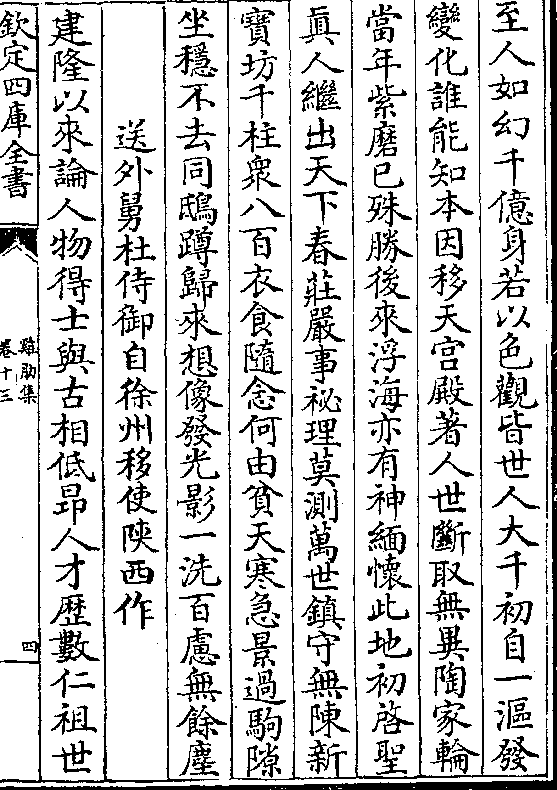 至人如幻千億身若以色觀皆世人大千初自一漚發
變化誰能知本因移天宫殿著人世斷取無異陶家輪
當年紫磨已殊勝後來浮海亦有神緬懷此地初啓聖
眞人繼出天下春莊嚴事祕理莫測萬世鎮守無陳新
寶坊千柱衆八百衣食隨念何由貧天寒急景過駒隙
坐穩不去同鴟蹲歸來想像發光影一洗百慮無餘塵
送外舅杜侍御自徐州移使陝西作
建隆以來論人物得士與古相低昻人才歴數仁祖世
欽定四庫全書
雞肋集
卷十三
四